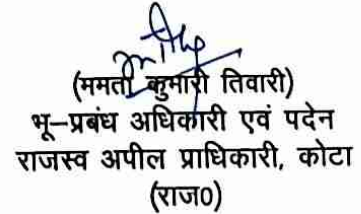 (ममता कुमारी तिवारी)
भू–प्रबंध अधिकारी एवं पदेन
राजस्व अपील प्राधिकारी, कोटा
(राज0)